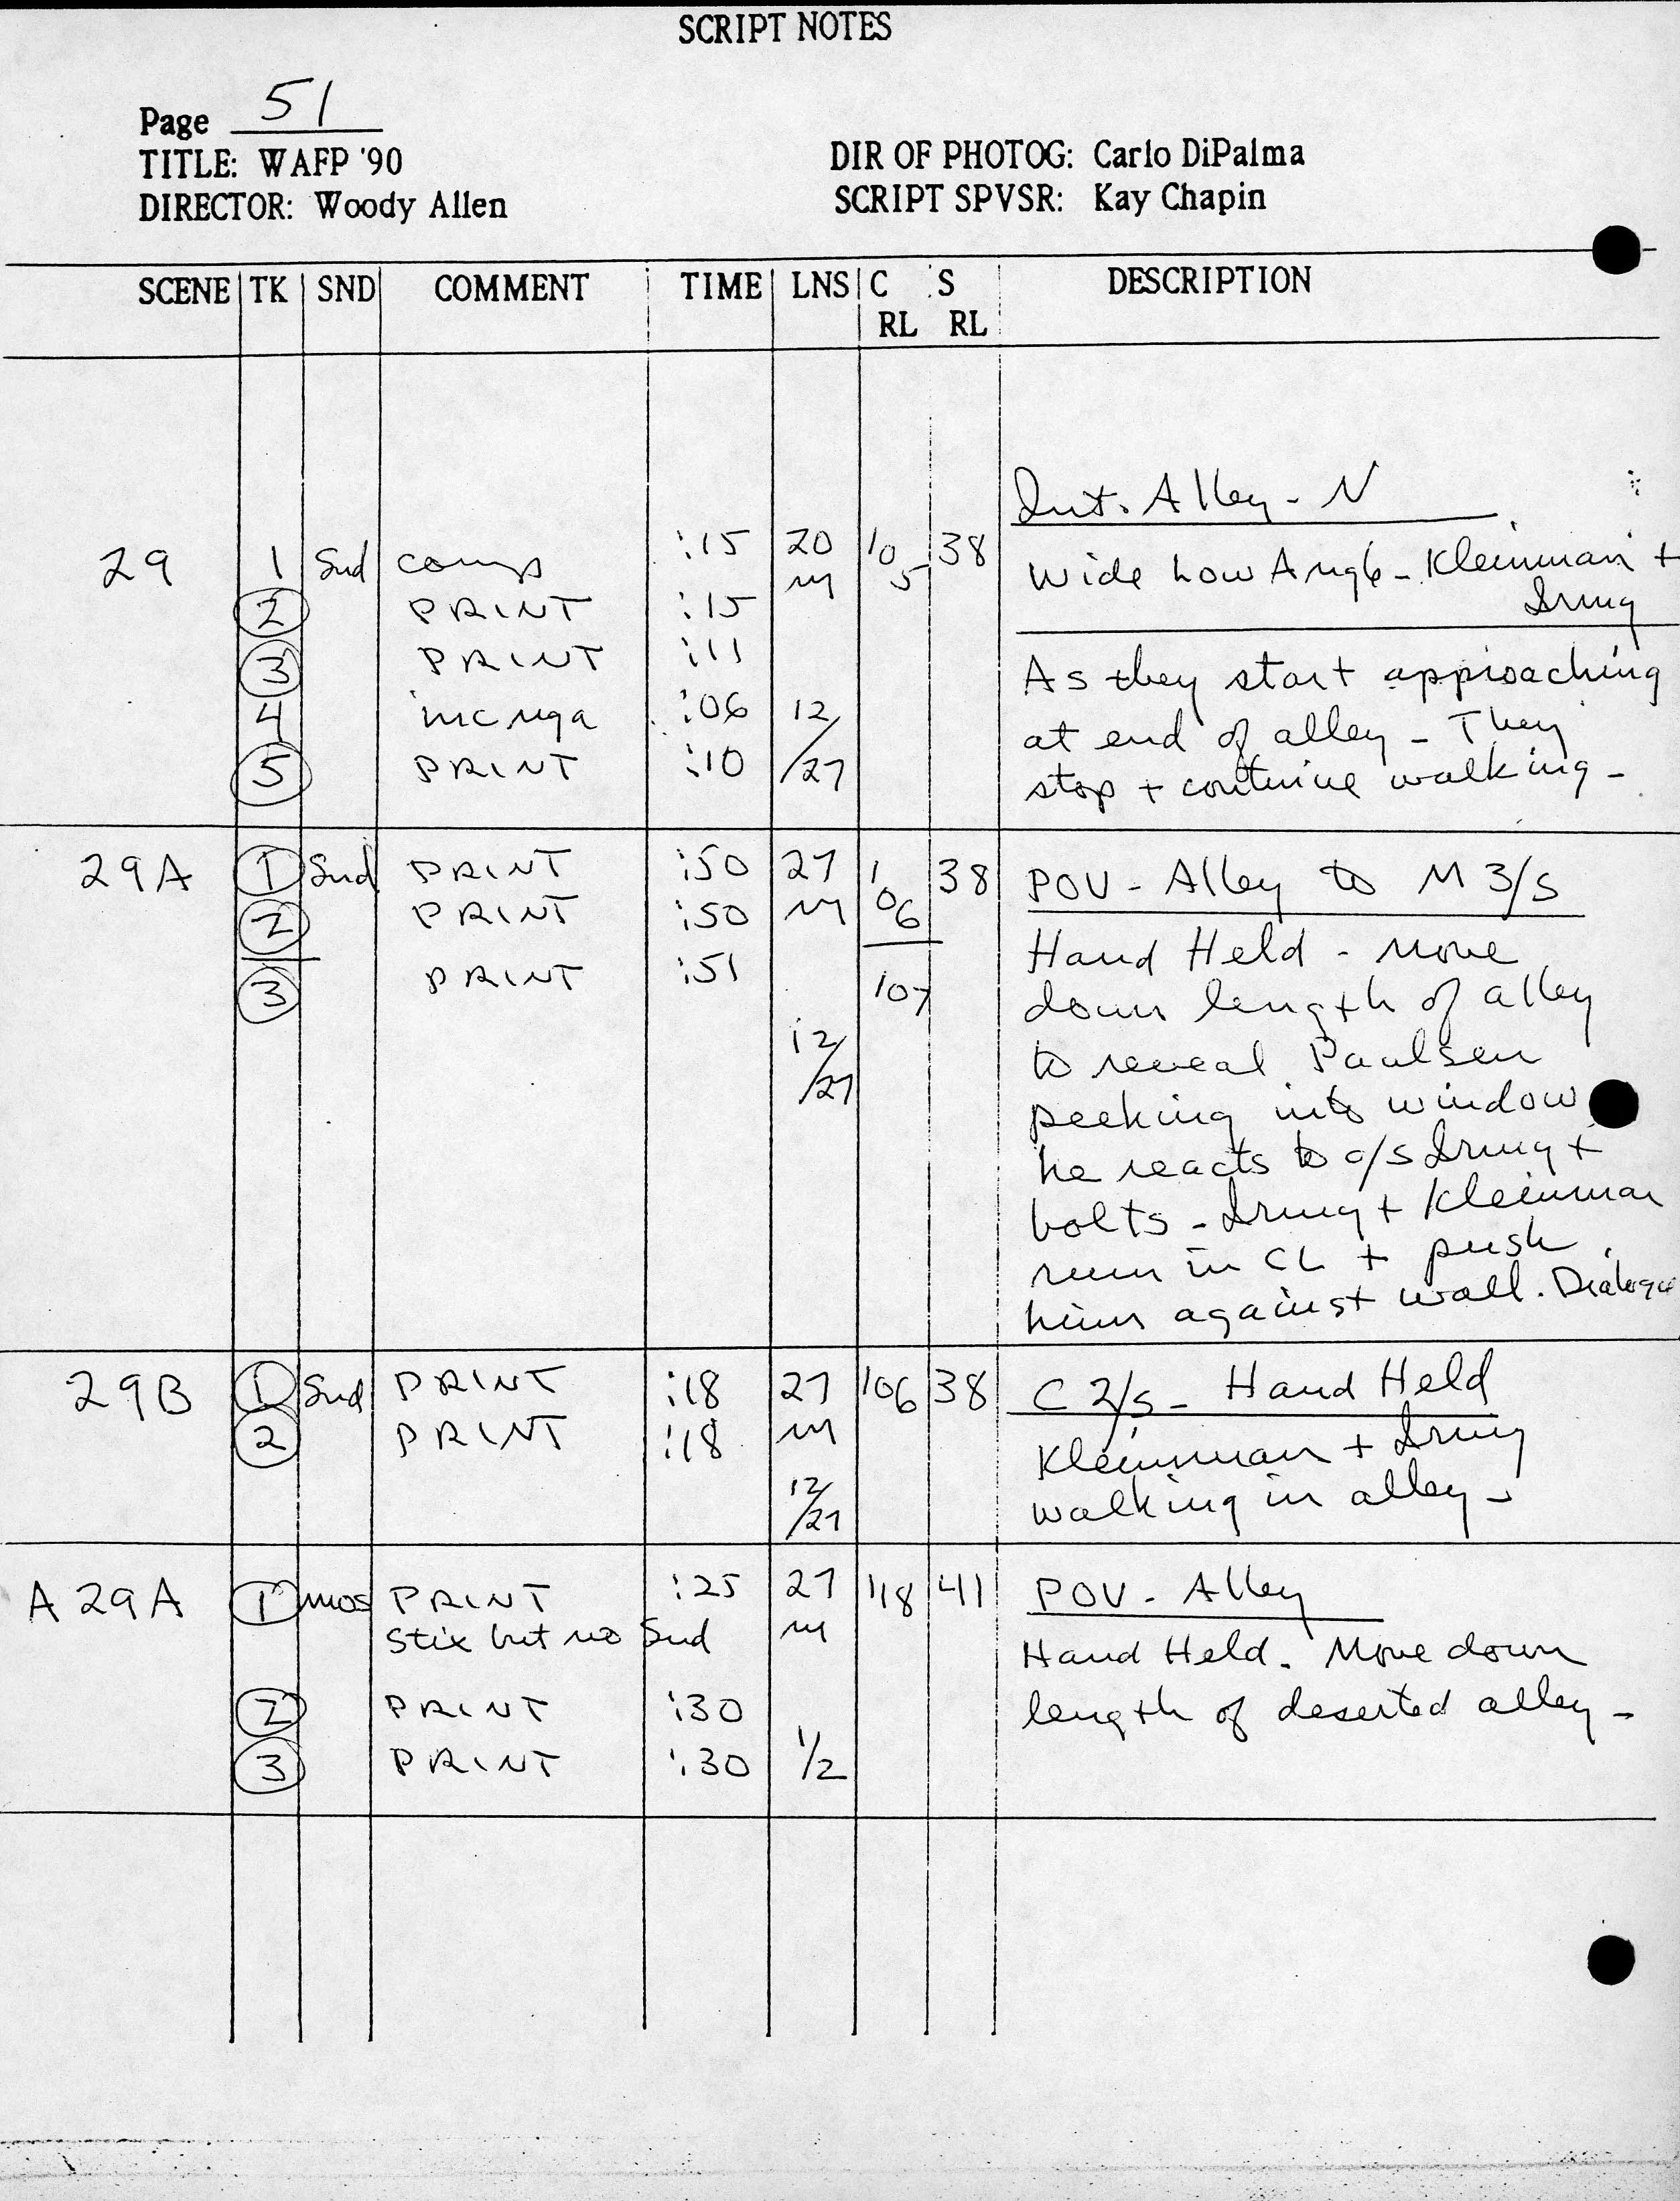 SCRIPT NOTES
Page 51
TITLE: WAFP '90
DIRECTOR: Woody Allen
DIR OF PHOTOG: Carlo DiPalma
SCRIPT SPVSR: Kay Chapin
SCENE TK SND COMMENT TIME LNS C RL S RL DESCRIPTION
Int. Alley - N
29 1 Snd comp :15 20 m 105 38 Wide Low Angle - Kleinman +
2 PRINT :15 Irving
3 PRINT :11 As they start approaching
4 inc nga :06 12/27 at end of alley - They
5 PRINT :10 stop + continue walking -
29A 1 Snd PRINT :50 27 m 106 38 POV - Alley to M 3/S
2 PRINT :50 Hand Held - Move
3 PRINT :51 107 down length of alley
12/27 to reveal Paulsen
peeking into window
he reacts to o/s Irving +
bolts - Irving + Kleinman
run in CL + push
him against wall. Dialogue
29B 1 Snd PRINT :18 27 m 106 38 C 2/S - Hand Held
2 PRINT :18 Kleinman + Irving
12/27 walking in alley -
A29A 1 MOS PRINT :25 27 m 118 41 POV - Alley
Stix but no Snd Hand Held. Move down
2 PRINT :30 length of deserted alley -
3 PRINT :30 1/2